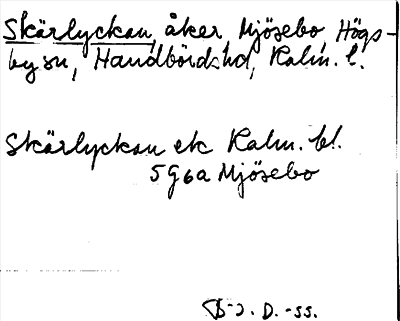 Skärlyckan, åker, Mjösebo, Högs-
by sn, Handbörds hd, Kalm. l.
Skärlyckan ek Kalm. bl.
5G6a Mjösebo
D. -55.